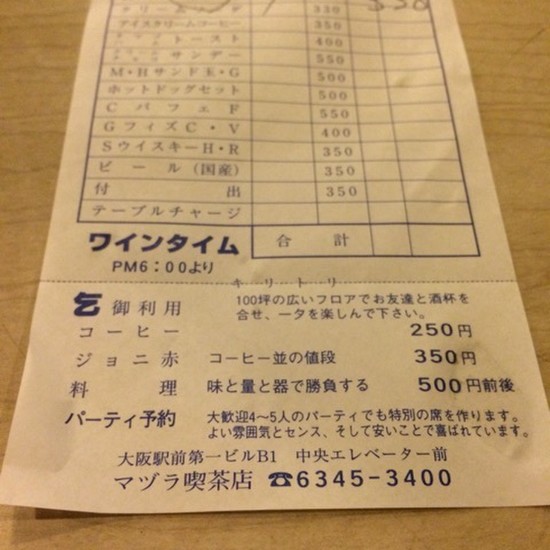 330
アイスクリームコーヒー 350
トースト 400
サンデー 550
M・HサンドE・G 500
ホットドッグセット 500
CパフェF 550
GフィズC・V 400
SウイスキーH・R 350
ビール(国産) 350
付出 350
テーブルチャージ
ワインタイム 合計
PM6:00より
キリトリ
乞御利用 100坪の広いフロアでお友達と酒杯を
合せ、一夕を楽しんで下さい。
コーヒー 250円
ジョニ赤 コーヒー並の値段 350円
料理 味と量と器で勝負する 500円前後
パーティ予約 大歓迎4〜5人のパーティでも特別の席を作ります。
よい雰囲気とセンス、そして安いことで喜ばれています。
大阪駅前第一ビルB1 中央エレベーター前
マヅラ喫茶店 ☎6345-3400